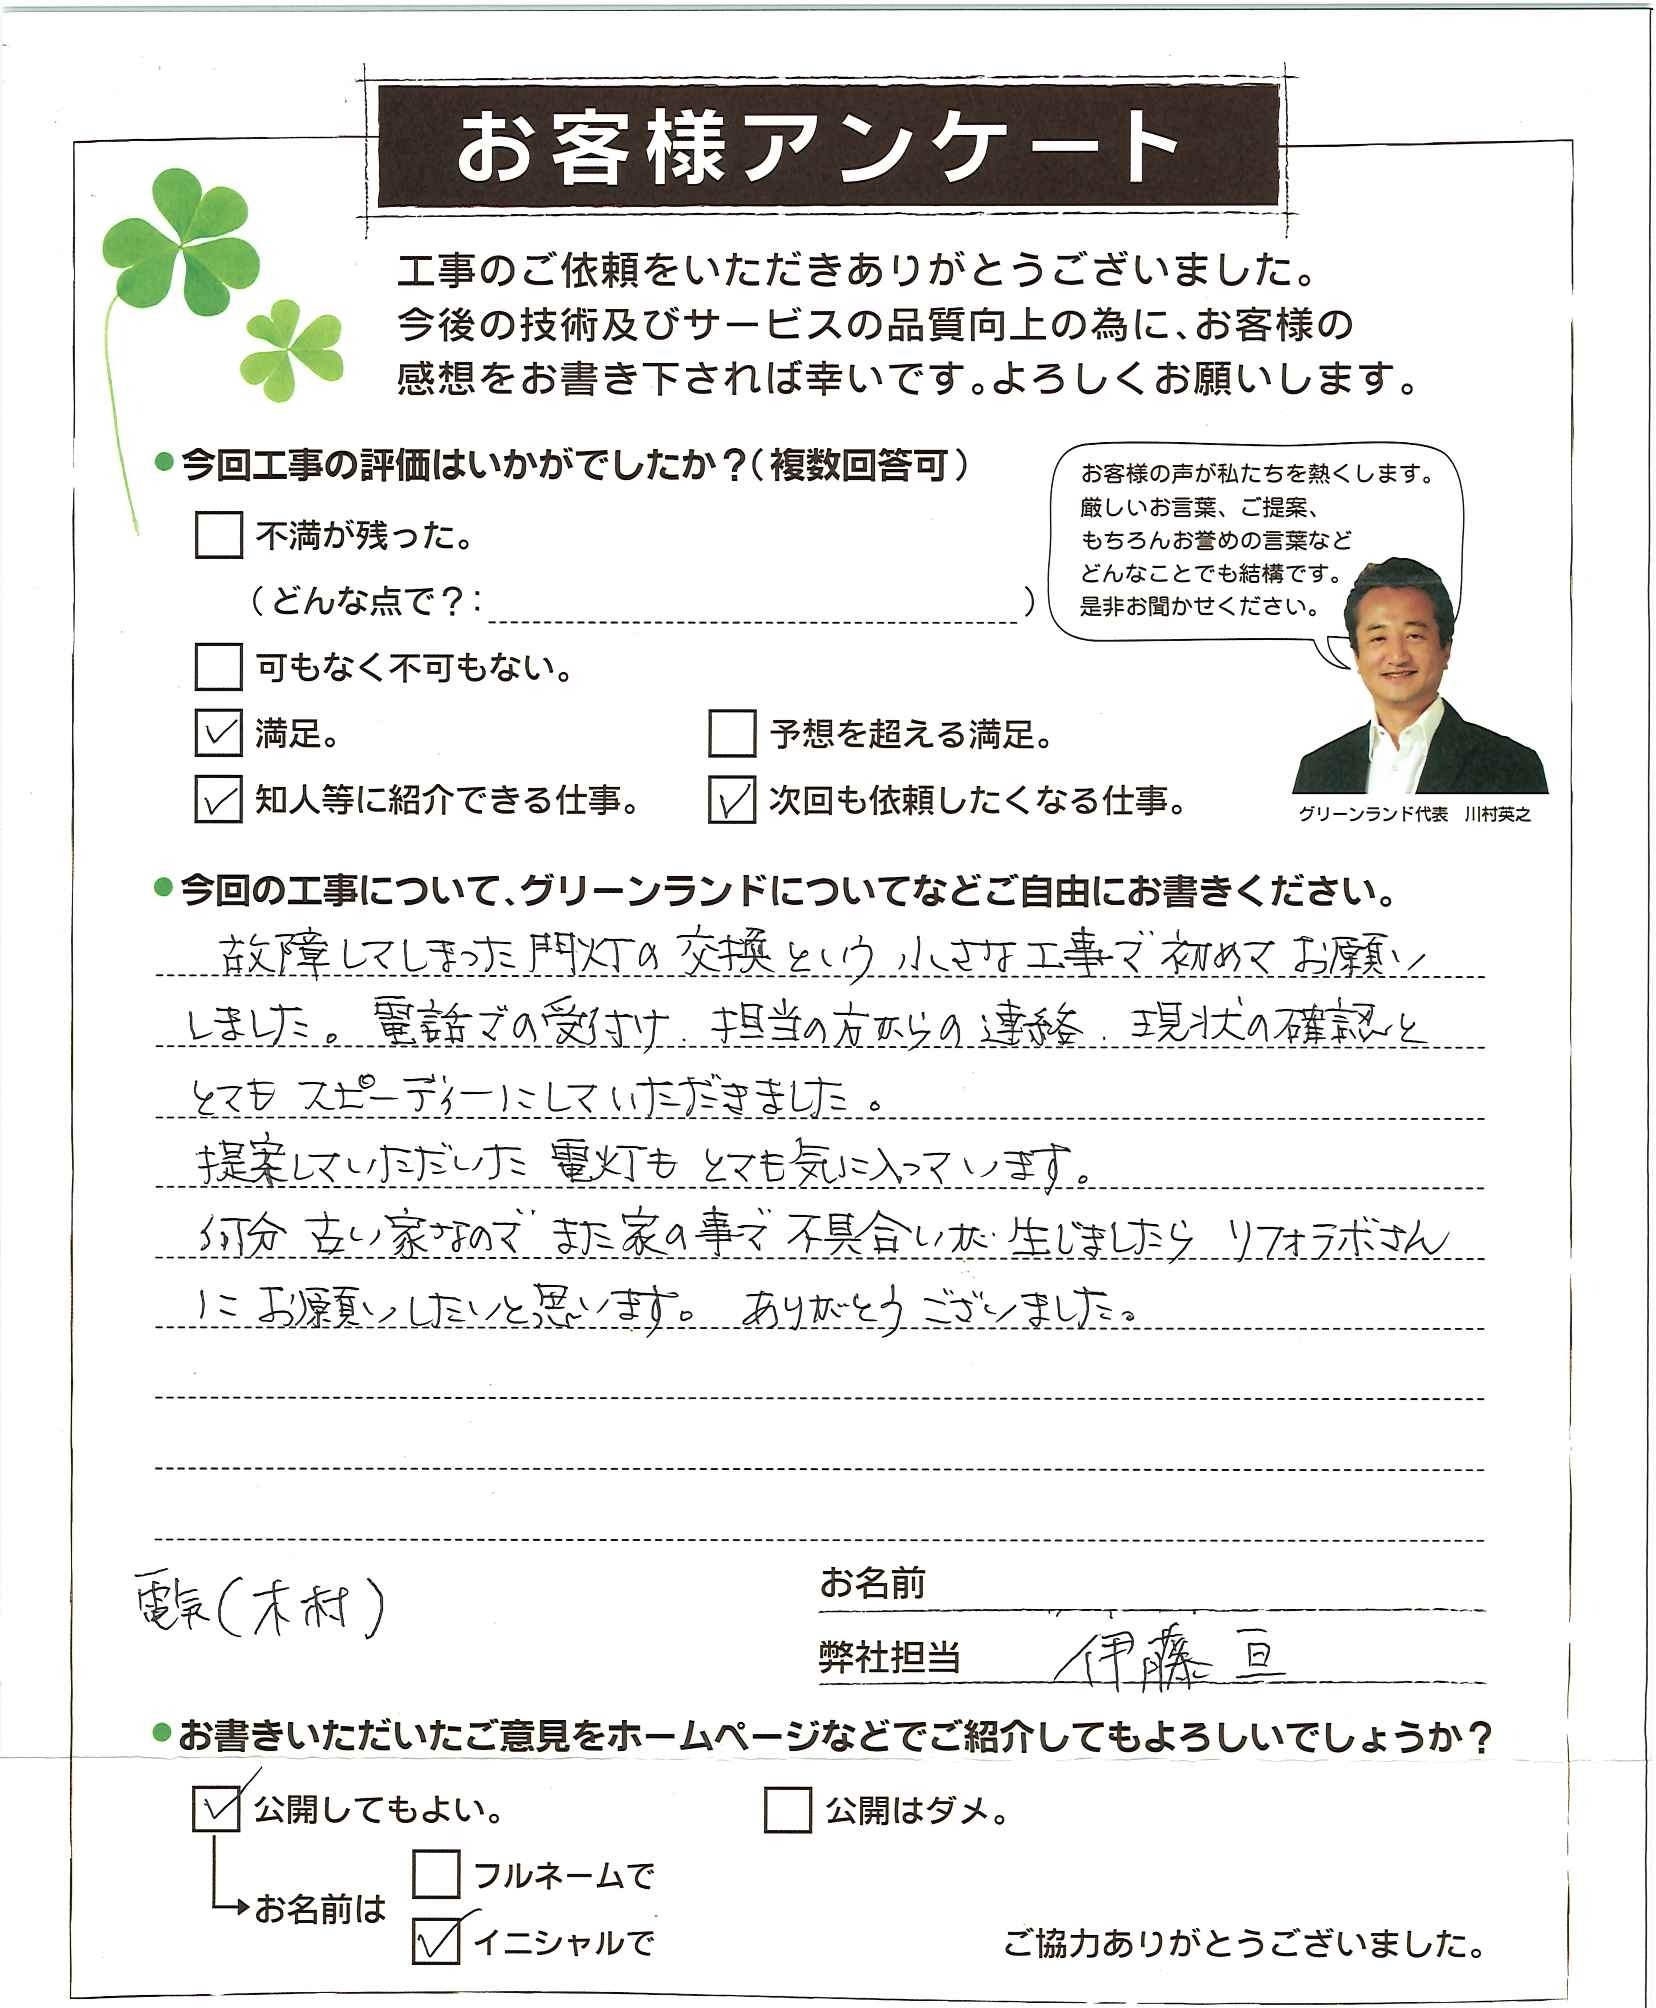 お客様アンケート
工事のご依頼をいただきありがとうございました。
今後の技術及びサービスの品質向上の為に、お客様の
感想をお書き下されば幸いです。よろしくお願いします。
●今回工事の評価はいかがでしたか?(複数回答可)
お客様の声が私たちを熱くします。
厳しいお言葉、ご提案、
もちろんお誉めの言葉など
どんなことでも結構です。
是非お聞かせください。
不満が残った。
(どんな点で?: )
可もなく不可もない。
満足。
予想を超える満足。
知人等に紹介できる仕事。
次回も依頼したくなる仕事。
グリーンランド代表 川村英之
●今回の工事について、グリーンランドについてなどご自由にお書きください。
故障してしまった門灯の交換という小さな工事で初めてお願い
しました。電話での受付け、担当の方からの連絡、現状の確認と
とてもスピーディーにしていただきました。
提案していただいた電灯もとても気に入っています。
何分古い家なのでまた家の事で不具合いが生じましたらリフォラボさん
にお願いしたいと思います。ありがとうございました。
電気(木村)
お名前
弊社担当 伊藤亘
●お書きいただいたご意見をホームページなどでご紹介してもよろしいでしょうか?
公開してもよい。
公開はダメ。
お名前は
フルネームで
イニシャルで
ご協力ありがとうございました。